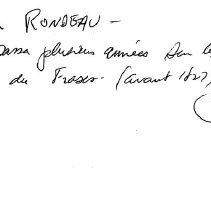 RONDEAU -
passa plusieurs années sur le
du Fraser. (avant 1827)